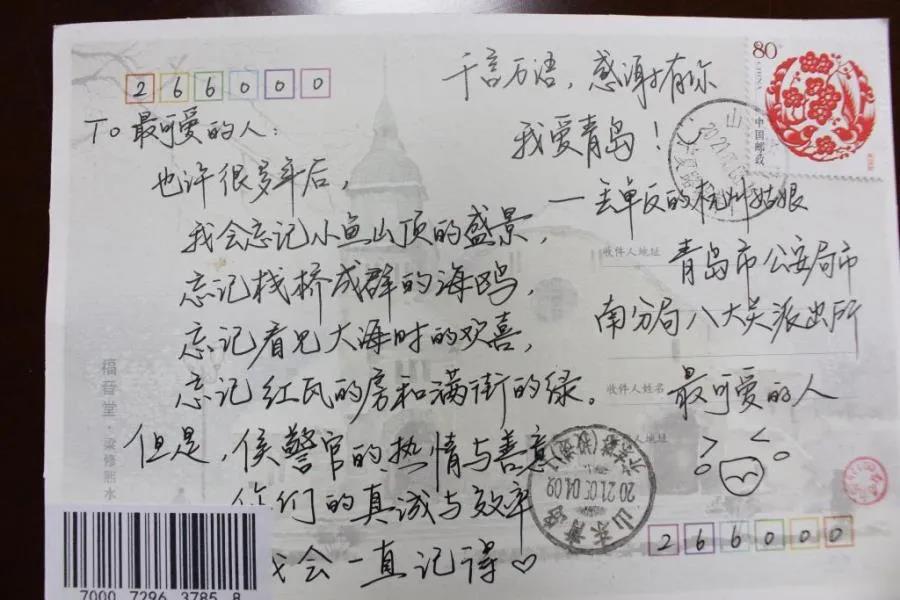 266000
To 最可爱的人：
也许很多年后，
我会忘记小鱼山顶的盛景，
忘记栈桥成群的海鸥，
忘记看见大海时的欢喜，
忘记红瓦的房和满街的绿。
但是，侯警官的热情与善意
你们的真诚与效率
我会一直记得♡
千言万语，感谢有你
我爱青岛！
——丢单反的杭州姑娘
80
中国邮政
收件人地址
青岛市公安局市
南分局八大关派出所
收件人姓名
最可爱的人
人地址
266000
福音堂·梁修熙水
山东青岛
2021.05.04.09
7000 7296 3785 8